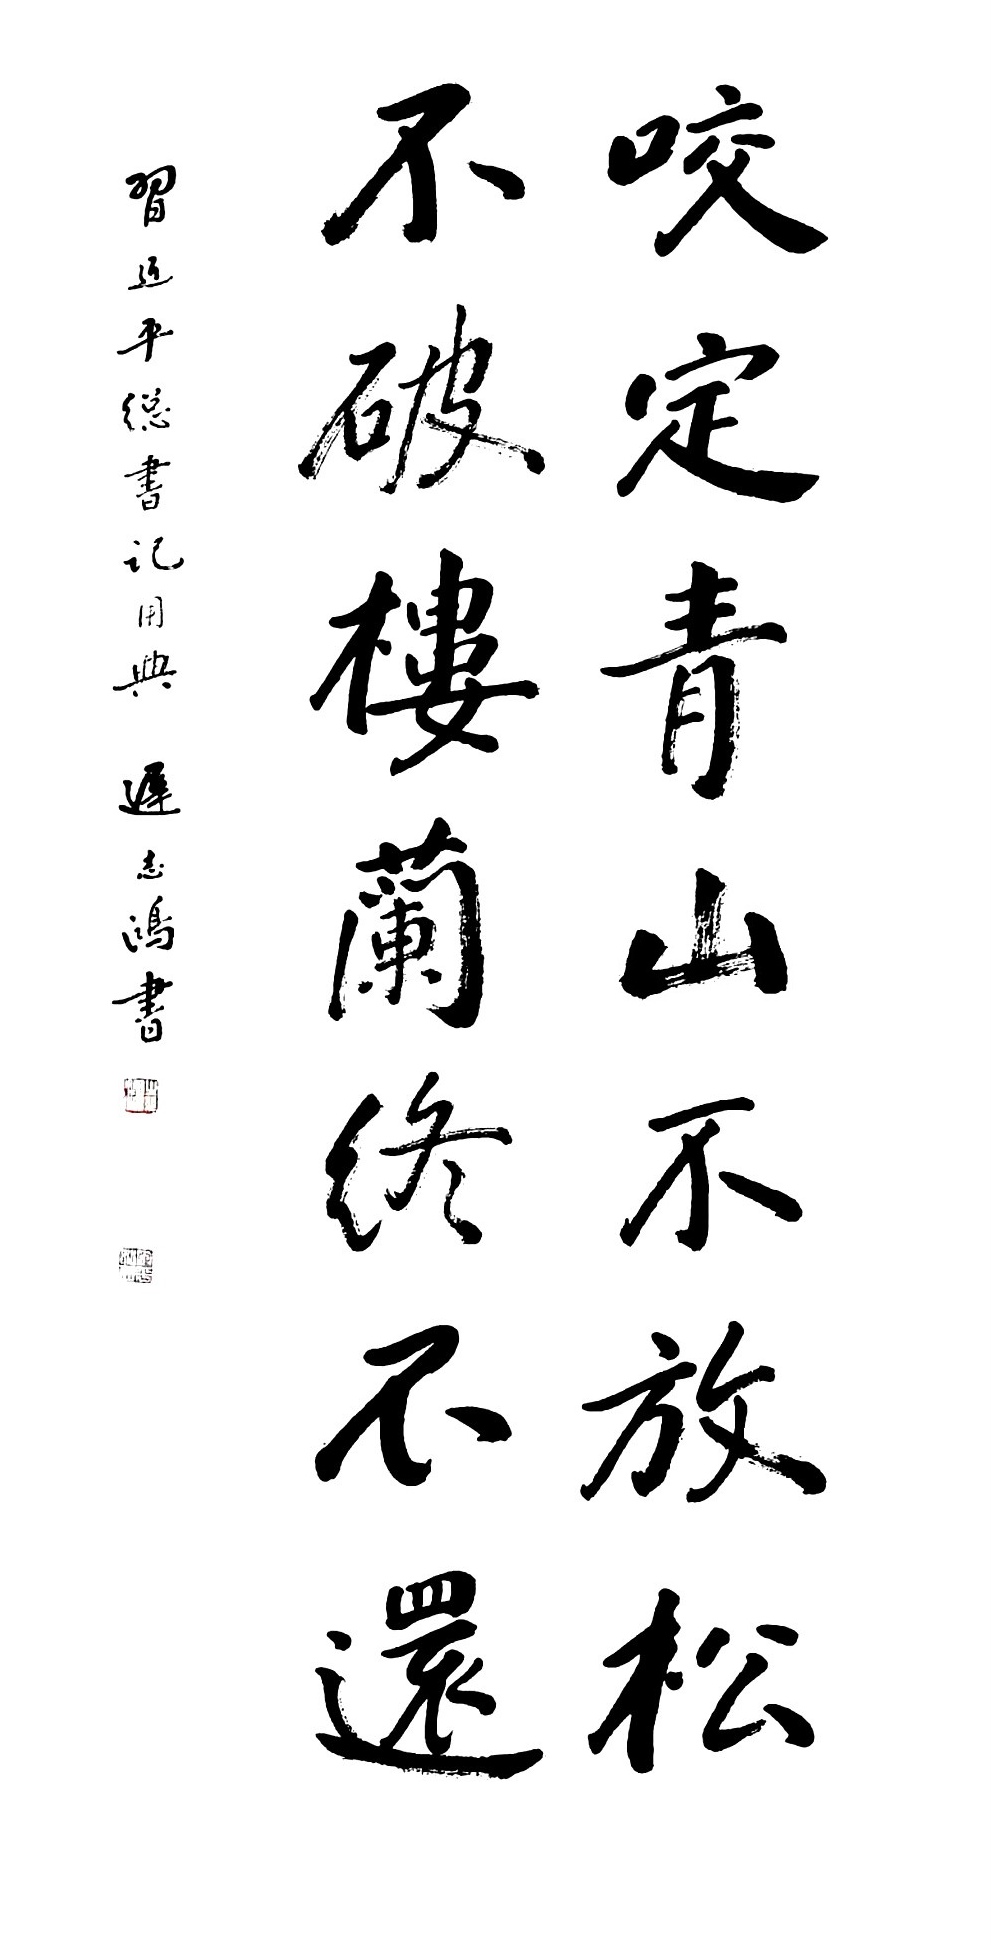 咬定青山不放松
不破樓蘭終不還
習近平總書記用典 遲志鴻書